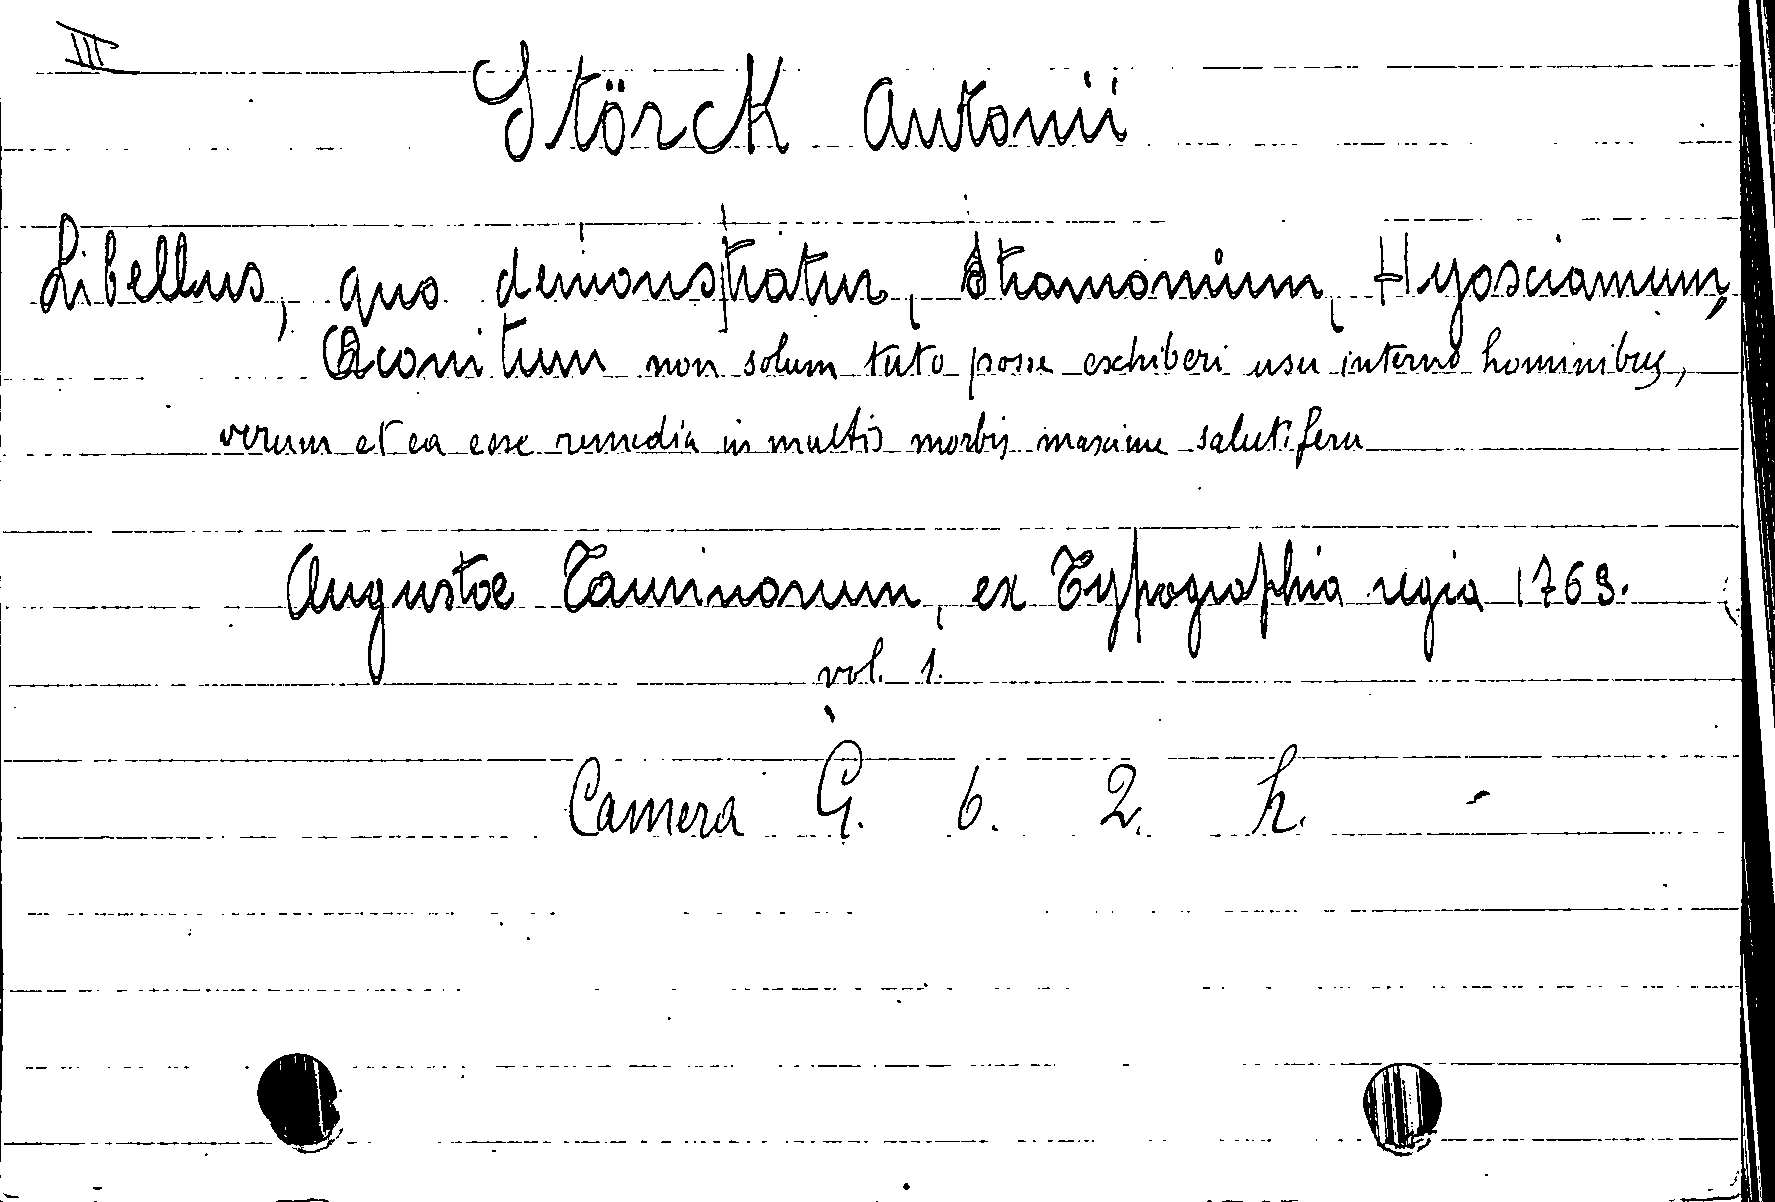 III
Störck Antonii
Libellus, quo demonstratur, Stramonium, Hyosciamum,
Aconitum non solum tuto posse exhiberi usu interno hominibus,
verum et ea esse remedia in multis morbis maxime salutifera
Augustae Taurinorum, ex Typographia regia 1763.
vol. 1.
Camera G. 6. 2. h. -